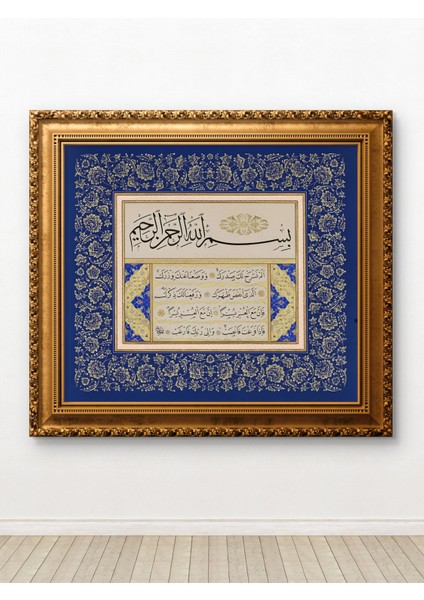 بسم الله الرحمن الرحيم
ألم نشرح لك صدرك ووضعنا عنك وزرك
الذي أنقض ظهرك ورفعنا لك ذكرك
فإن مع العسر يسرا إن مع العسر يسرا
فإذا فرغت فانصب وإلى ربك فارغب